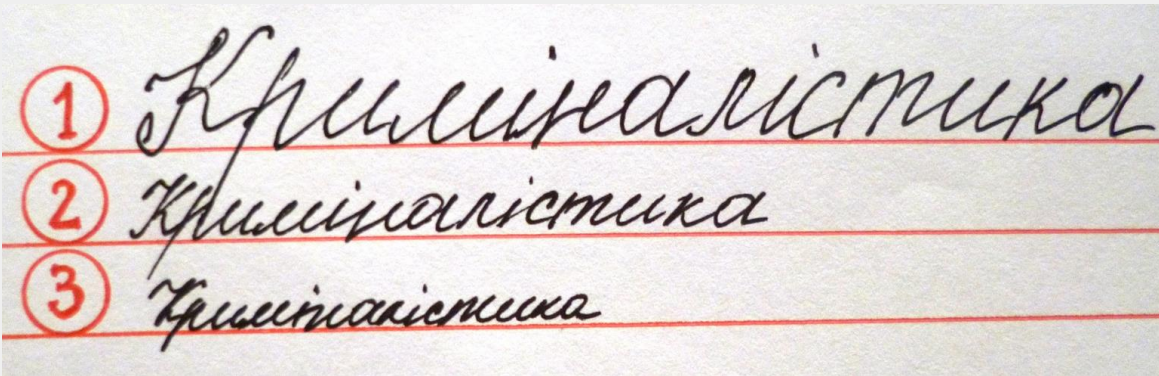 1 Криміналістика
2 Криміналістика
3 Криміналістика